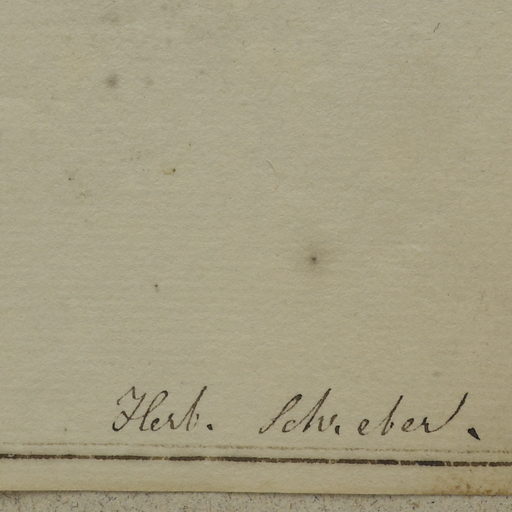 Herb. Schreber.